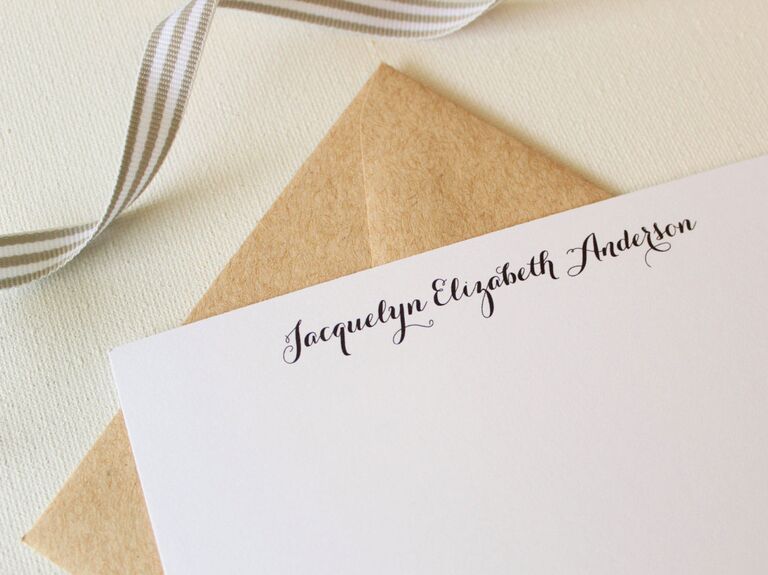 Jacquelyn Elizabeth Anderson